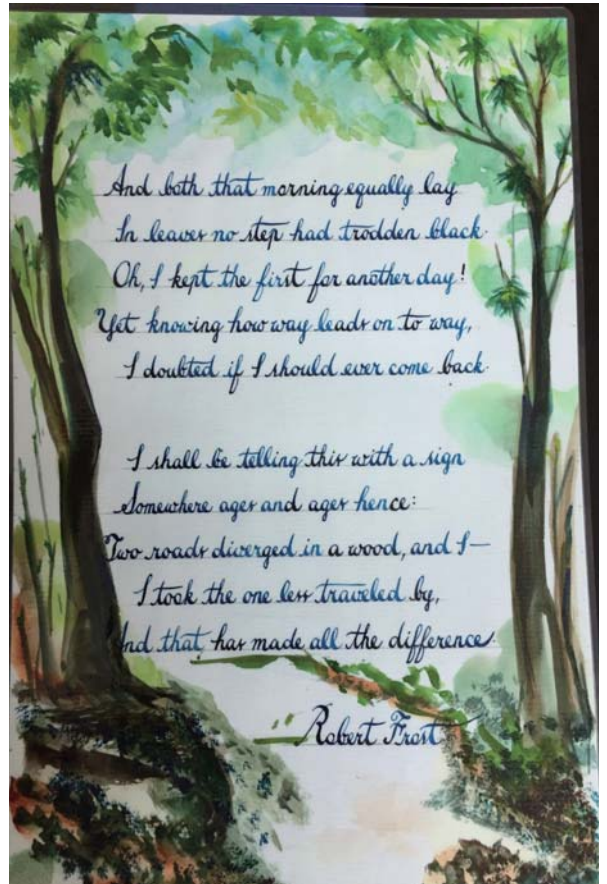 And both that morning equally lay
In leaves no step had trodden black.
Oh, I kept the first for another day!
Yet knowing how way leads on to way,
I doubted if I should ever come back.
I shall be telling this with a sign
Somewhere ages and ages hence:
Two roads diverged in a wood, and I—
I took the one less traveled by,
And that has made all the difference.
Robert Frost